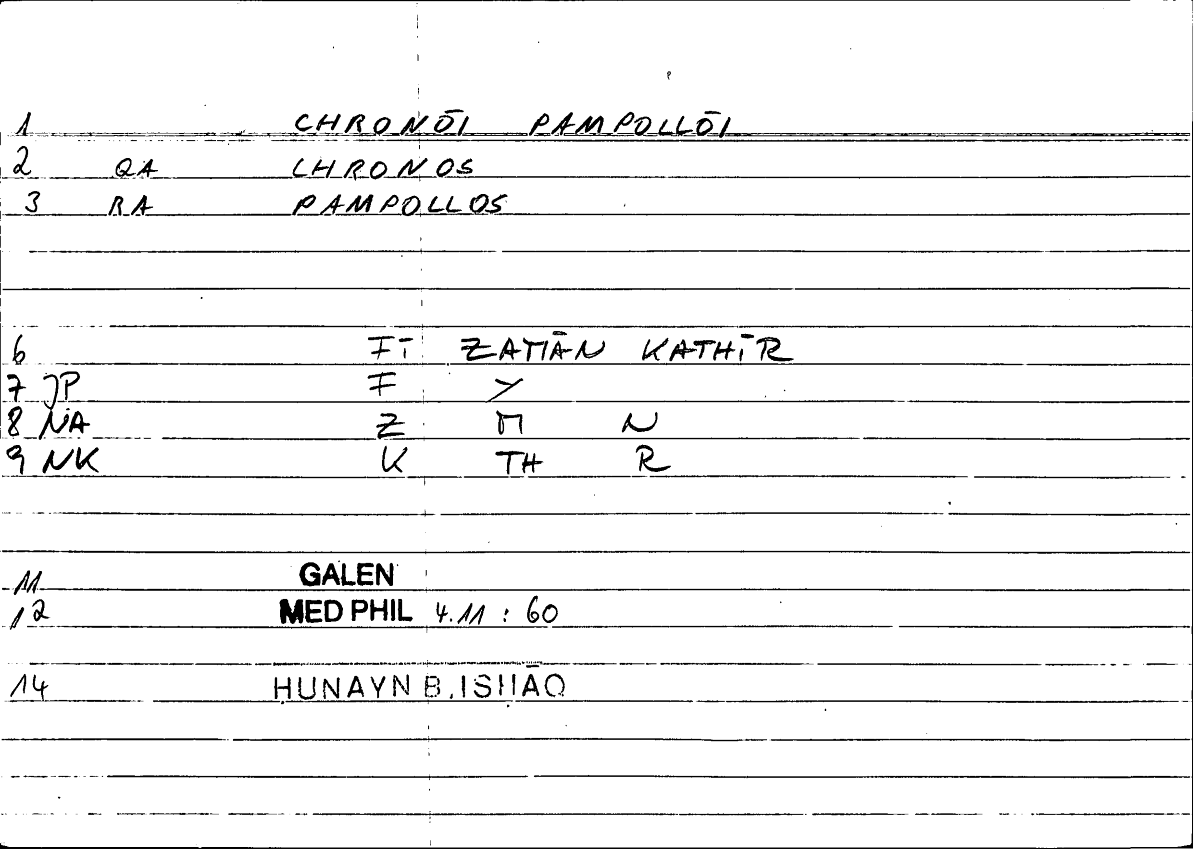 1 CHRONŌI PAMPOLLŌI
2 QA CHRONOS
3 RA PAMPOLLOS
6 FĪ ZAMĀN KATHĪR
7 JP F Y
8 NA Z M N
9 NK K TH R
11 GALEN
12 MED PHIL 4.11 : 60
14 ḤUNAYN B. ISḤĀQ